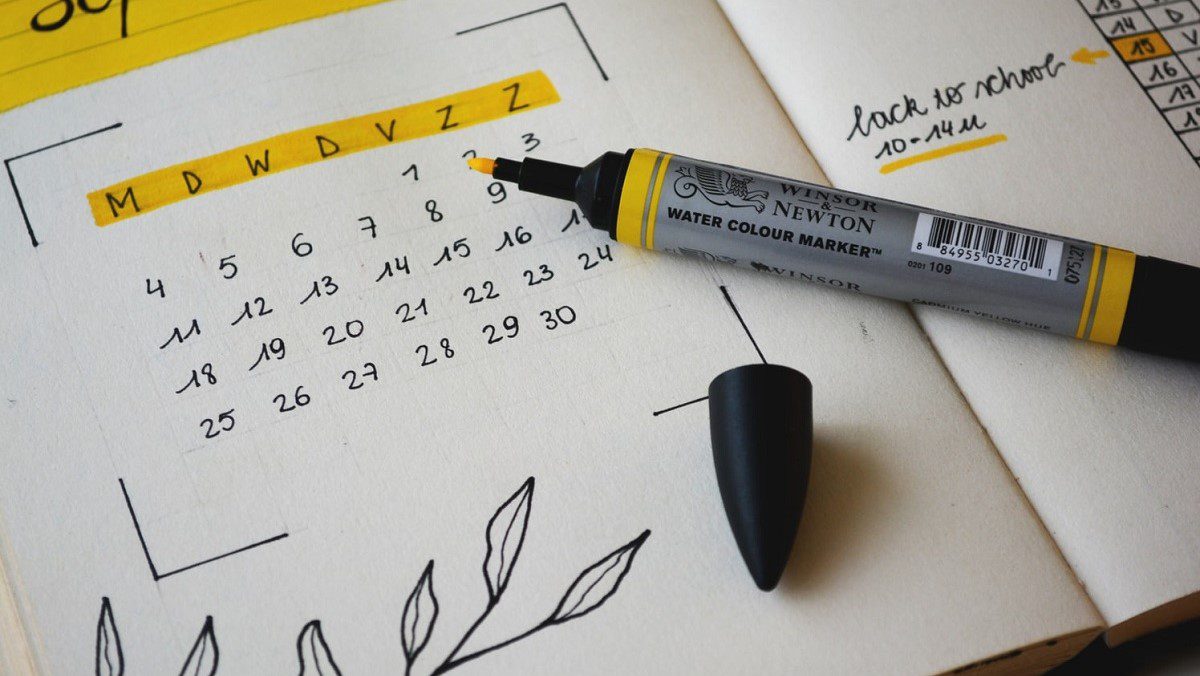 M D W D V Z Z
1 2 3
4 5 6 7 8 9
11 12 13 14 15 16
18 19 20 21 22 23 24
25 26 27 28 29 30
back to school
10-14u
14 D
15 V
16
17
WINSOR
&
NEWTON
WATER COLOUR MARKER™
WINSOR
8 84955 03270 1
0201 109
075121
CADMIUM YELLOW HUE